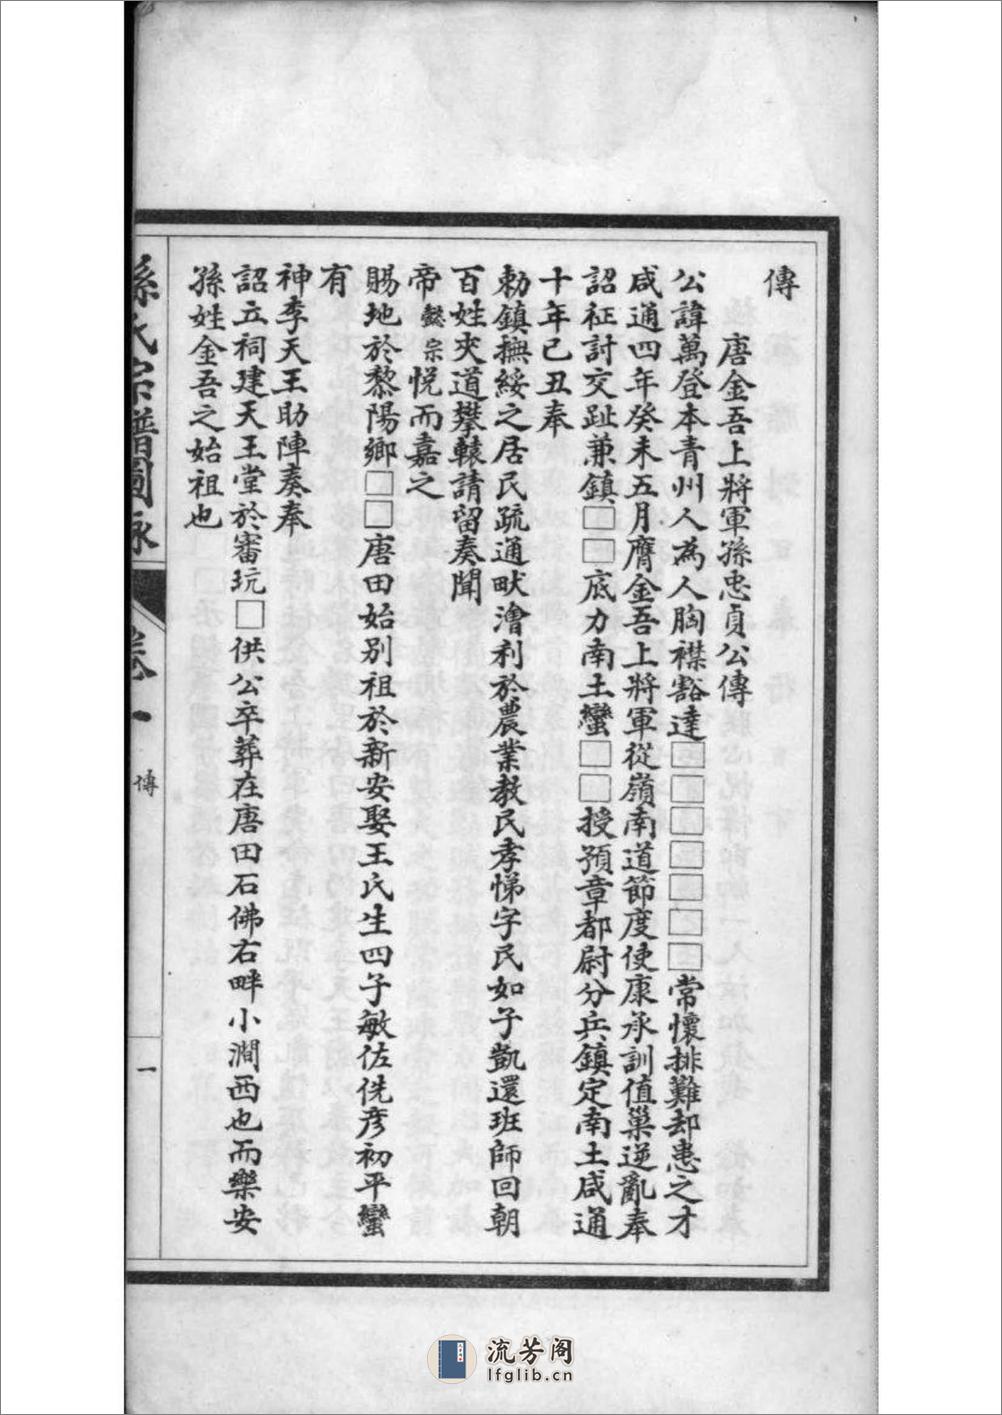 傳
唐金吾上將軍孫忠貞公傳
公諱萬登本青州人為人胸襟豁達□□□□□□□常懷排難却患之才
咸通四年癸未五月膺金吾上將軍從嶺南道節度使康承訓值巢逆亂奉
詔征討交趾兼鎮□□底力南土蠻□□授預章都尉分兵鎮定南土咸通
十年己丑奉
勅鎮撫綏之居民疏通畎澮利於農業教民孝悌字民如子凱還班師回朝
百姓夾道攀轅請留奏聞
帝懿宗悅而嘉之
賜地於黎陽鄉□□唐田始別祖於新安娶王氏生四子敏佐侁彥初平蠻
有
神李天王助陣奏奉
詔立祠建天王堂於審玩□供公卒葬在唐田石佛右畔小澗西也而樂安
孫姓金吾之始祖也
孫氏宗譜圖詠 卷一 傳 一
流芳阁
lfglib.cn